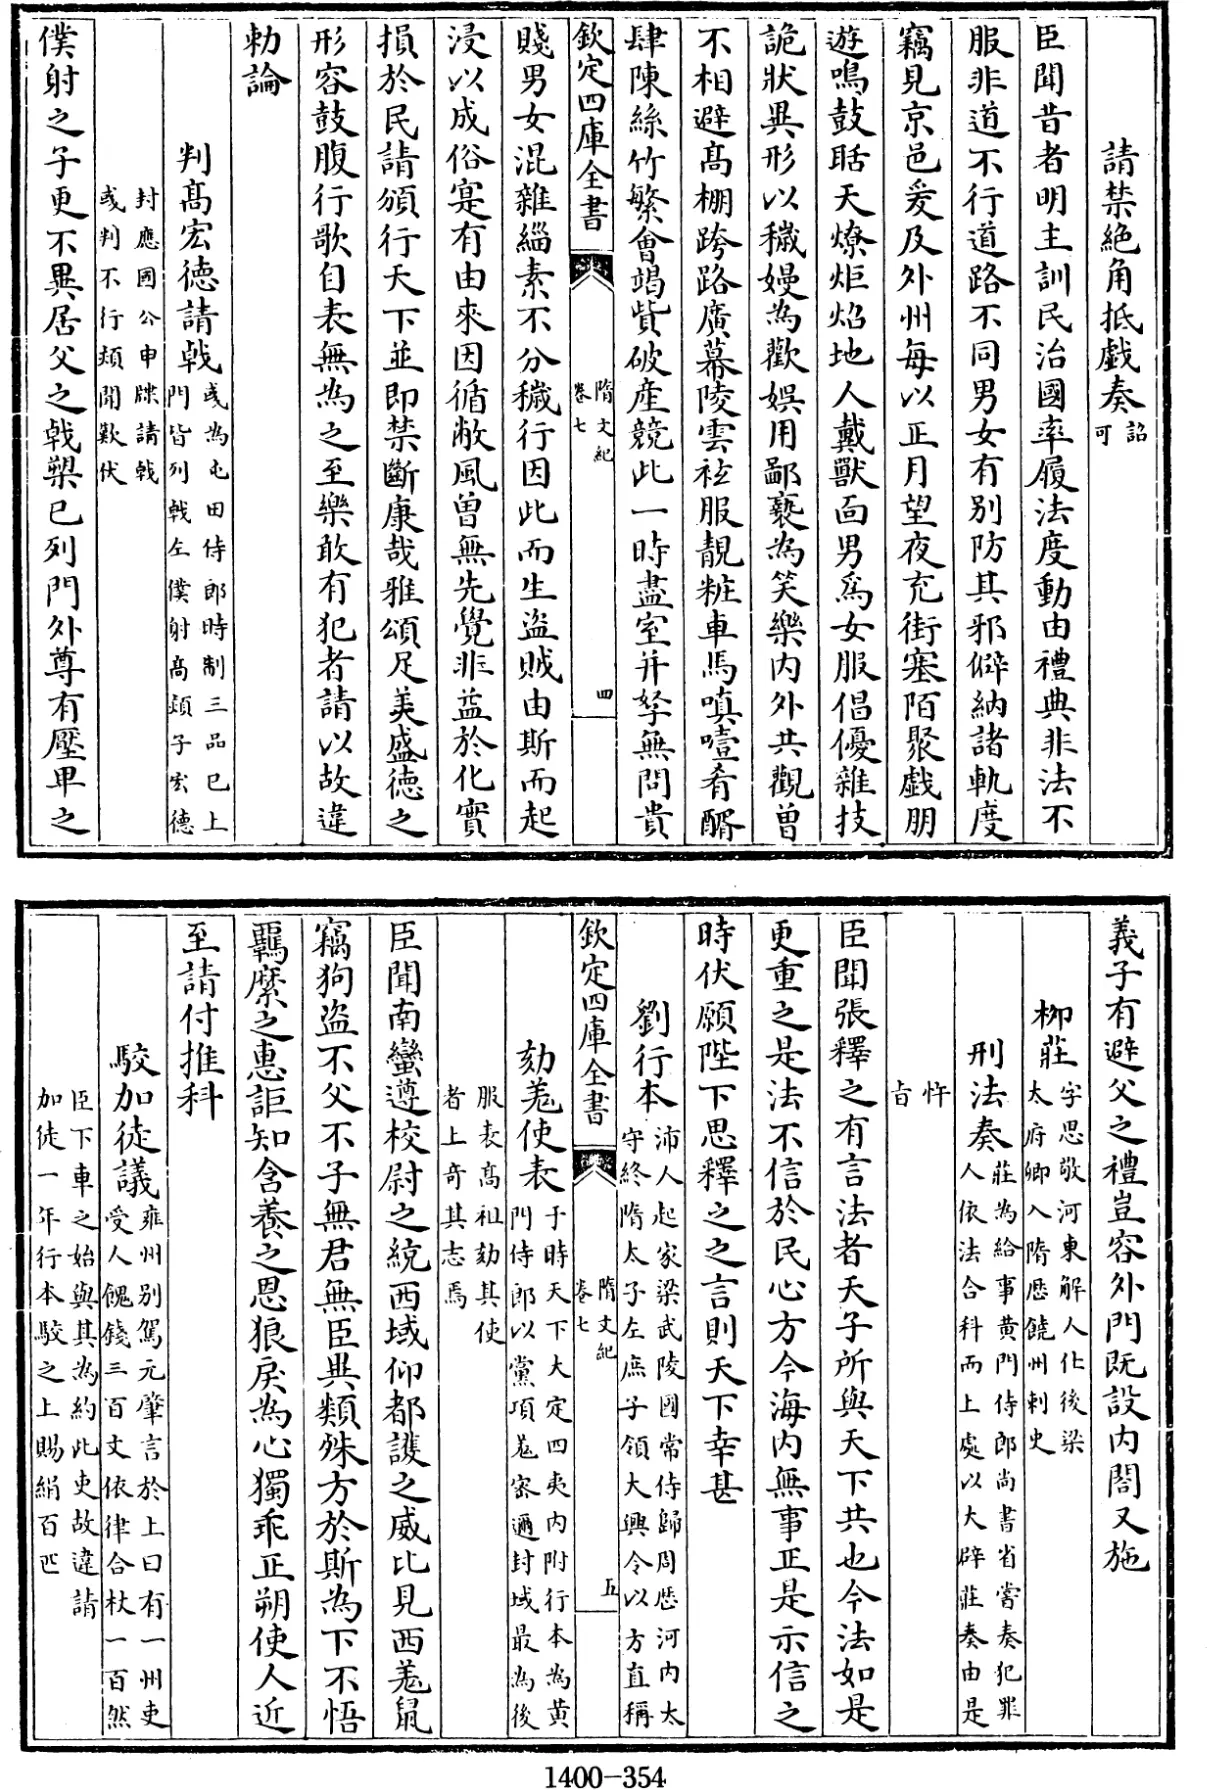 請禁絶角抵戲奏詔可
臣聞昔者明主訓民治國率履法度動由禮典非法不
服非道不行道路不同男女有別防其邪僻納諸軌度
竊見京邑爰及外州每以正月望夜充街塞陌聚戲朋
遊鳴鼓聒天燎炬焰地人戴獸面男為女服倡優雜技
詭狀異形以穢嫚為歡娯用鄙䙝為笑樂内外共觀曽
不相避髙棚跨路廣幕陵雲袨服靚粧車馬嗔噎肴醑
肆陳絲竹繁㑹竭貲破産競此一時盡室并孥無問貴
欽定四庫全書
隋文紀
卷七
四
賤男女混雜緇素不分穢行因此而生盗賊由斯而起
浸以成俗寔有由來因循敝風曽無先覺非益於化實
損於民請頒行天下並即禁斷康哉雅頌足美盛德之
形容鼓腹行歌自表無為之至樂敢有犯者請以故違
勅論
判髙宏德請戟或為屯田侍郎時制三品已上
門皆列戟左僕射髙熲子宏德
封應國公申牒請戟
或判不行熲聞歎伏
僕射之子更不異居父之戟槊已列門外尊有壓卑之
義子有避父之禮豈容外門既設内閤又施
栁莊字思敬河東解人仕後梁
太府卿入隋歴饒州刺史
刑法奏莊為給事黄門侍郎尚書省嘗奏犯罪
人依法合科而上處以大辟莊奏由是
忤
㫖
臣聞張釋之有言法者天子所與天下共也今法如是
更重之是法不信於民心方今海内無事正是示信之
時伏願陛下思釋之之言則天下幸甚
劉行本沛人起家梁武陵國常侍歸周歴河内太
守終隋太子左庶子領大興令以方直稱
欽定四庫全書
隋文紀
卷七
五
劾羌使表于時天下大定四夷内附行本為黄
門侍郎以黨項羌宻邇封域最為後
服表髙祖劾其使
者上奇其志焉
臣聞南蠻遵校尉之統西域仰都護之威比見西羌鼠
竊狗盗不父不子無君無臣異類殊方於斯為下不悟
羈縻之惠詎知含養之恩狼戾為心獨乖正朔使人近
至請付推科
駮加徒議雍州别駕元肇言於上曰有一州吏
受人餽錢三百文依律合杖一百然
臣下車之始與其為約此吏故違請
加徒一年行本駮之上賜絹百匹
1400-354